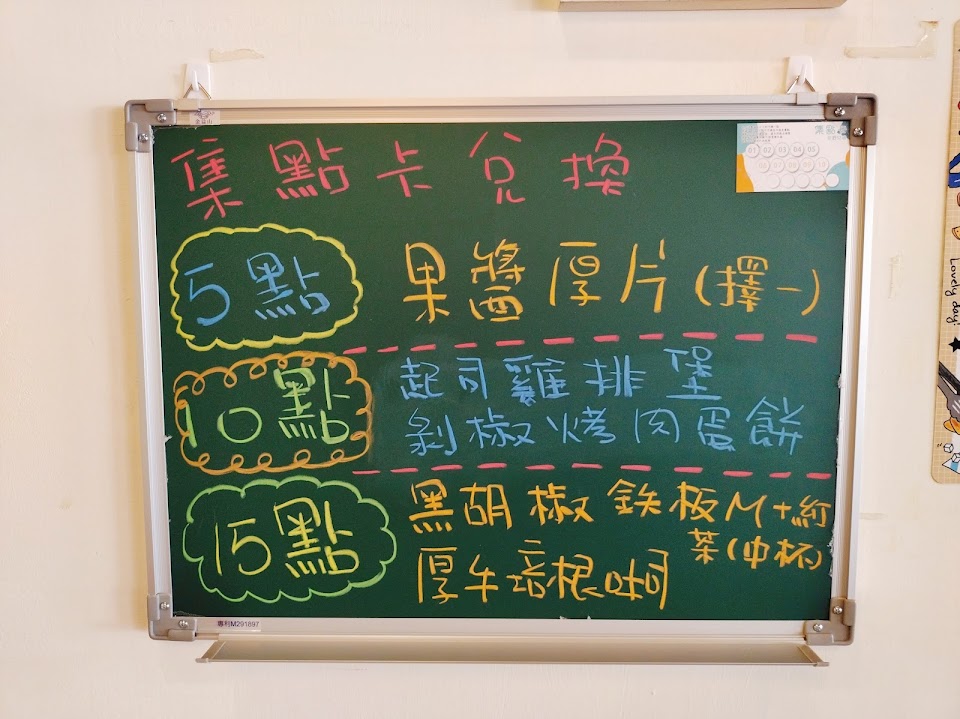 集點卡兌換
5點 果醬厚片(擇一)
10點 起司雞排堡
剝椒烤肉蛋餅
15點 黑胡椒鉄板M+紅
茶(中杯)
厚牛培根咖
專利M291897
01 02 03 04 05
06 07 08 09 10
Lovely day!